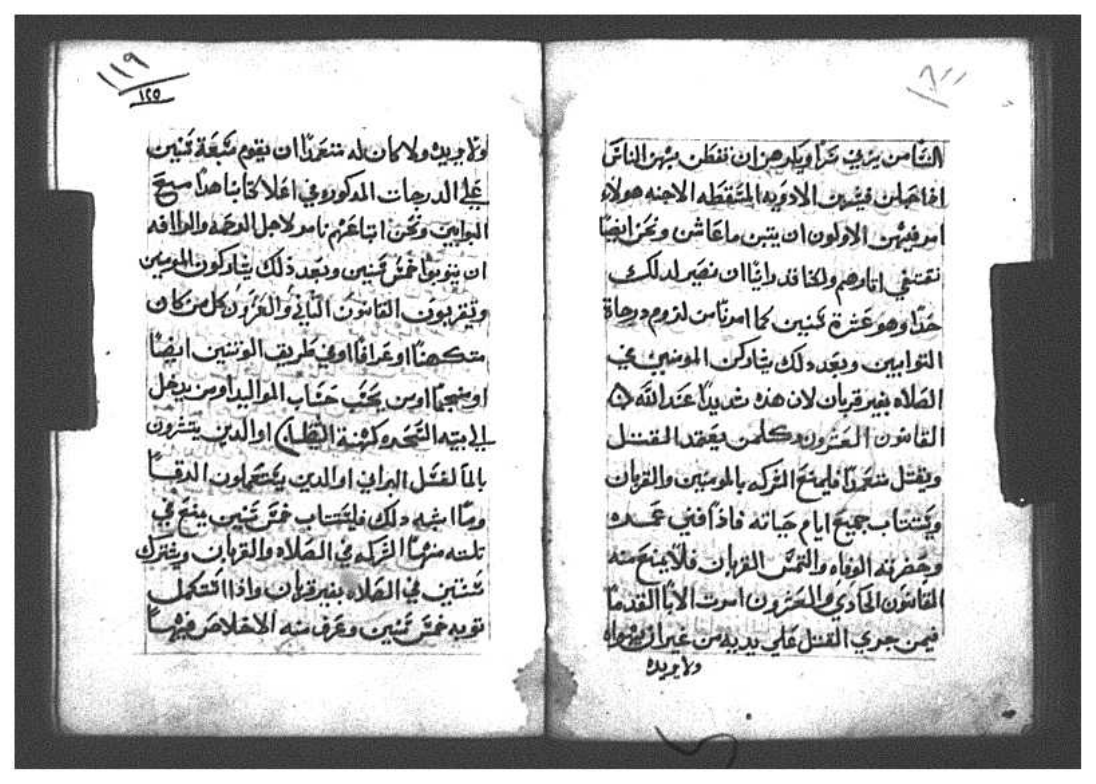 ٨١١
النسا من يزني سرا ويكرهن ان تفطن بهن الناس
اذا حبلن فيشربن الادويه المسقطه الاجنه هولاء
امر فيهن الاولون ان يتبن ما عاشن ونحن ايضا
نقتفي اتاوهم ولكنا قد راينا ان نصير لدلك
حدا وهو عشرة سنين كما امرنا من لزوم درجاة
التوابين وبعد دلك يشاركن المومنين في
الصلاه بغير قربان لان هذه شديدا عند الله
القانون العشرون كلمن يعتمد القتل
ويقتل متعمدا فليمنع الشركه بالمومنين والقربان
ويستتاب جميع ايام حياته فاذا فني عمره
وحضرته الوفاه والتمس القربان فلا يمنع منه
القانون الحادي والعشرون امرت الابا القدما
فيمن جري القتل علي يديه من غير ان يهواه
ولا يريده
١١٩
١٢٥
ولا يريده ولا كان له متعمدا ان يقوم سبعة سنين
علي الدرجات المدكوره في اعلا كتابنا هدا مع
التوابين ونحن اتباعهم نامر لاجل الرحمه والرافه
ان يتوبوا خمس سنين وبعد ذلك يشاركون المومنين
ويتقربون القانون الثاني والعشرون كل من كان
متكهنا او عرافا او في طريق الوتنين ايضا
او منجما او من يحسب حساب المواليد او من يدخل
الي بيته السحره كهنة الشيطان او الدين يتشرون
بالما لغسل البراني او الدين يستعملون الدقسا
وما اشبه دلك فليستتاب خمس سنين يمنع في
تلته منها الشركه في الصلاه والقربان ويشترك
سنتين في الصلاه بغير قربان واذا اكتمل
توبه خمس سنين وعرف منه الاخلاص فيها